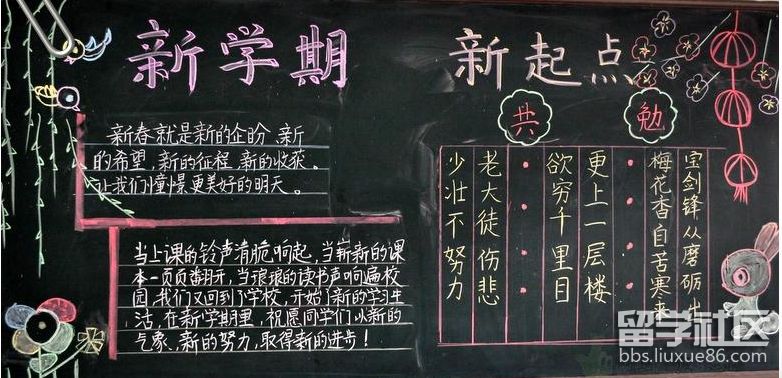 新学期
新起点
新春就是新的企盼、新
的希望，新的征程，新的收获。
让我们憧憬更美好的明天。
当上课的铃声清脆响起，当崭新的课
本一页页翻开，当琅琅的读书声响遍校
园，我们又回到了学校，开始了新的学习生
活，在新学期里，祝愿同学们以新的
气象、新的努力，取得新的进步！
共勉
少壮不努力
老大徒伤悲
欲穷千里目
更上一层楼
梅花香自苦寒来
宝剑锋从磨砺出
留学社区
bbs.liuxue86.com